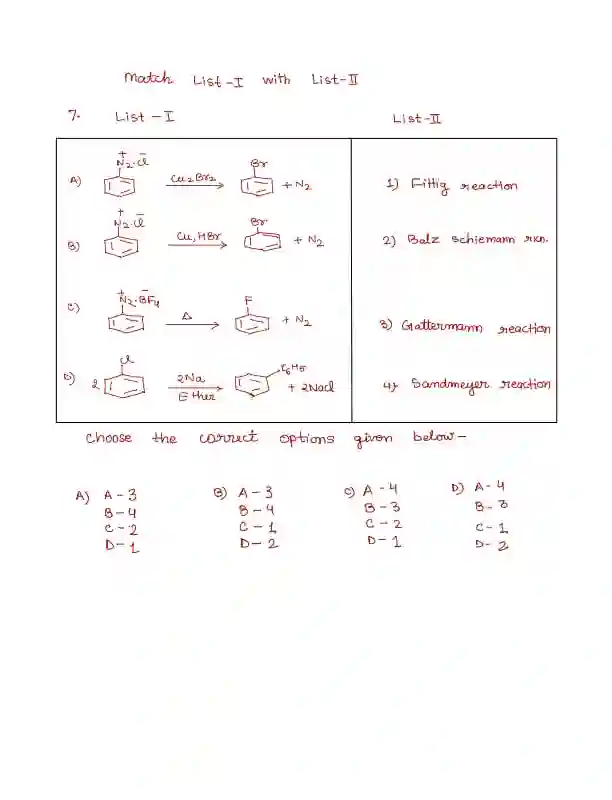 Match List-I with List-II
7. List-I List-II
A) N2+.Cl- Cu2Br2 Br + N2 1) Fittig reaction
B) N2+.Cl- Cu,HBr Br + N2 2) Balz schiemann rxn.
C) N2+.BF4- Δ F + N2 3) Gattermann reaction
D) 2 Cl 2Na Ether C6H5 + 2NaCl 4) Sandmeyer reaction
choose the correct options given below-
A) A-3 B) A-3 C) A-4 D) A-4
B-4 B-4 B-3 B-3
C-2 C-1 C-2 C-1
D-1 D-2 D-1 D-2